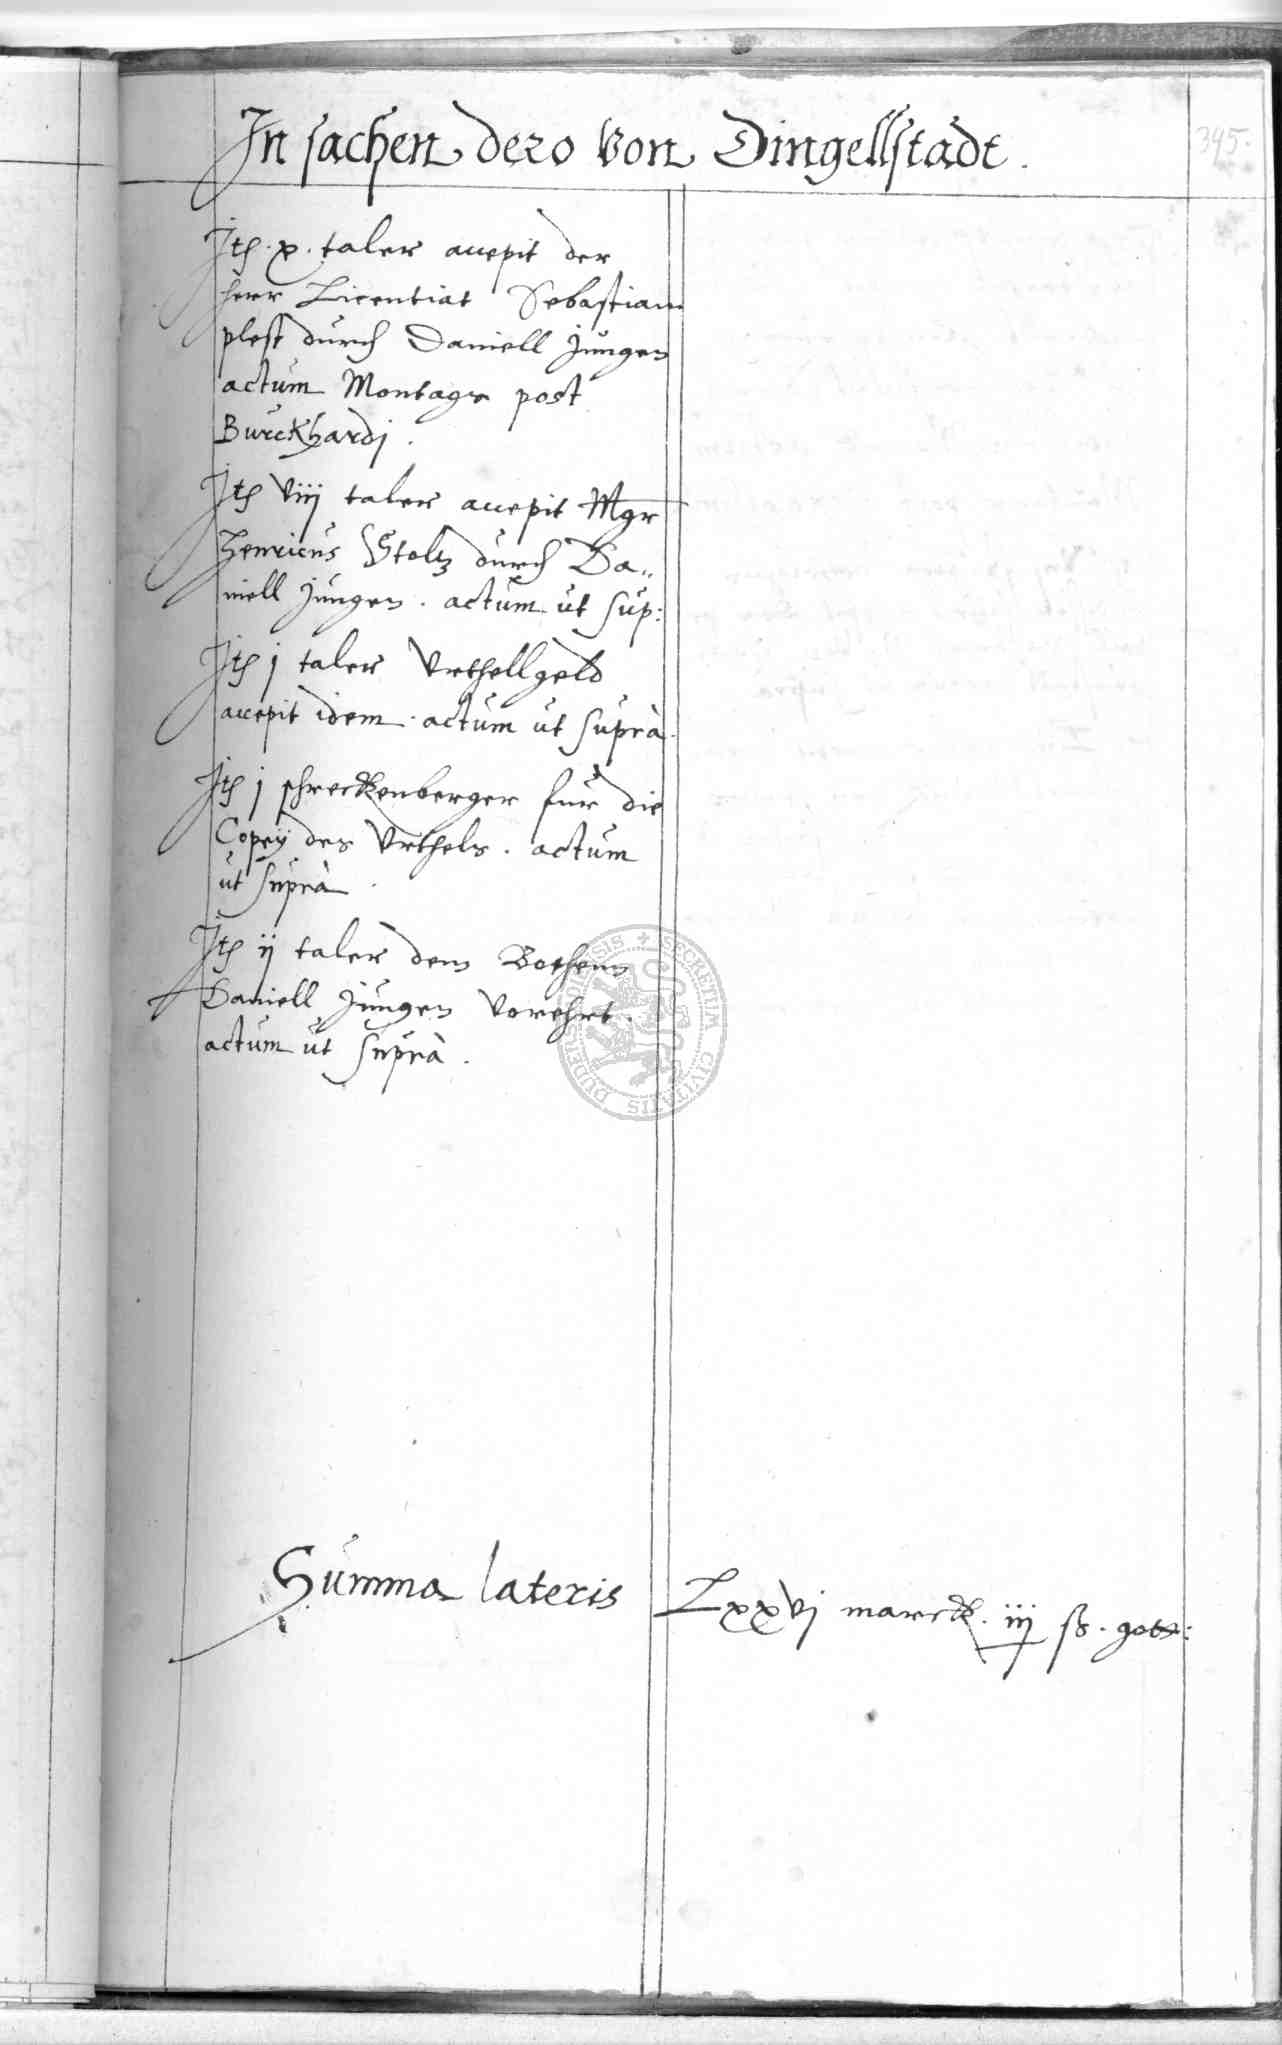 In sachen dero von Dingellstadt.
395.
Itē. x. taler accepit der
herr Licentiat Sebastian
plest durch Daniell Jungen
actum Montags post
Burckhardj.
Itē viij taler accepit Mgr
Henricus Stoltz durch Da„
niell Jungen. actum ut sup:
Itē j taler Vrthellgeld
accepit idem. actum ut suprà.
Itē j schreckenberger für die
Copeÿ des Vrthels. actum
ut suprà.
Itē ij taler dem Bothenn
Daniell Jungen vorehrt.
actum ut suprà.
SECRETUM CIVITATIS DUDERSTADIENSIS
Summa lateris Lxxvj marck. iij ß. gott: